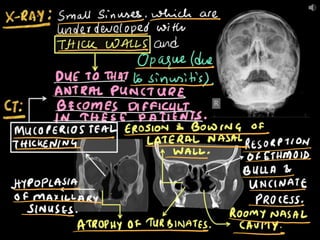 X-RAY: Small Sinuses, which are
underdeveloped with
THICK WALLS and
Opaque (due
to sinusitis)
DUE TO THAT
ANTRAL PUNCTURE
BECOMES DIFFICULT
IN THESE PATIENTS.
CT:
MUCOPERIOSTEAL
THICKENING
EROSION & BOWING OF
LATERAL NASAL
WALL.
RESORPTION
OF ETHMOID
BULLA &
UNCINATE
PROCESS.
HYPOPLASIA
OF MAXILLARY
SINUSES.
ATROPHY OF TURBINATES.
ROOMY NASAL
CAVITY.
R